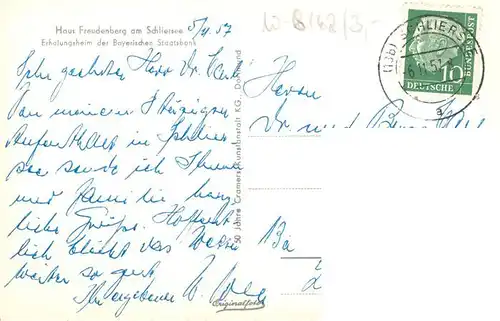 Haus Freudenberg am Schliersee
Erholungsheim der Bayerischen Staatsbank
5/11.57
W-8162/3,-
Sehr geehrter Herr Dr.
Von meinem
Aufenthalt in Schlier
see sende ich Ihnen
und Familie herz
liche Grüße. Hoffent
lich bleibt das Wetter
weiter so gut.
Ihr ergebener W.
50 Jahre Cramers Kunstanstalt KG., Dortmund
Originalfoto
Herrn
Dr. med.
(13b) SCHLIERS
11.57
DEUTSCHE
BUNDESPOST
10